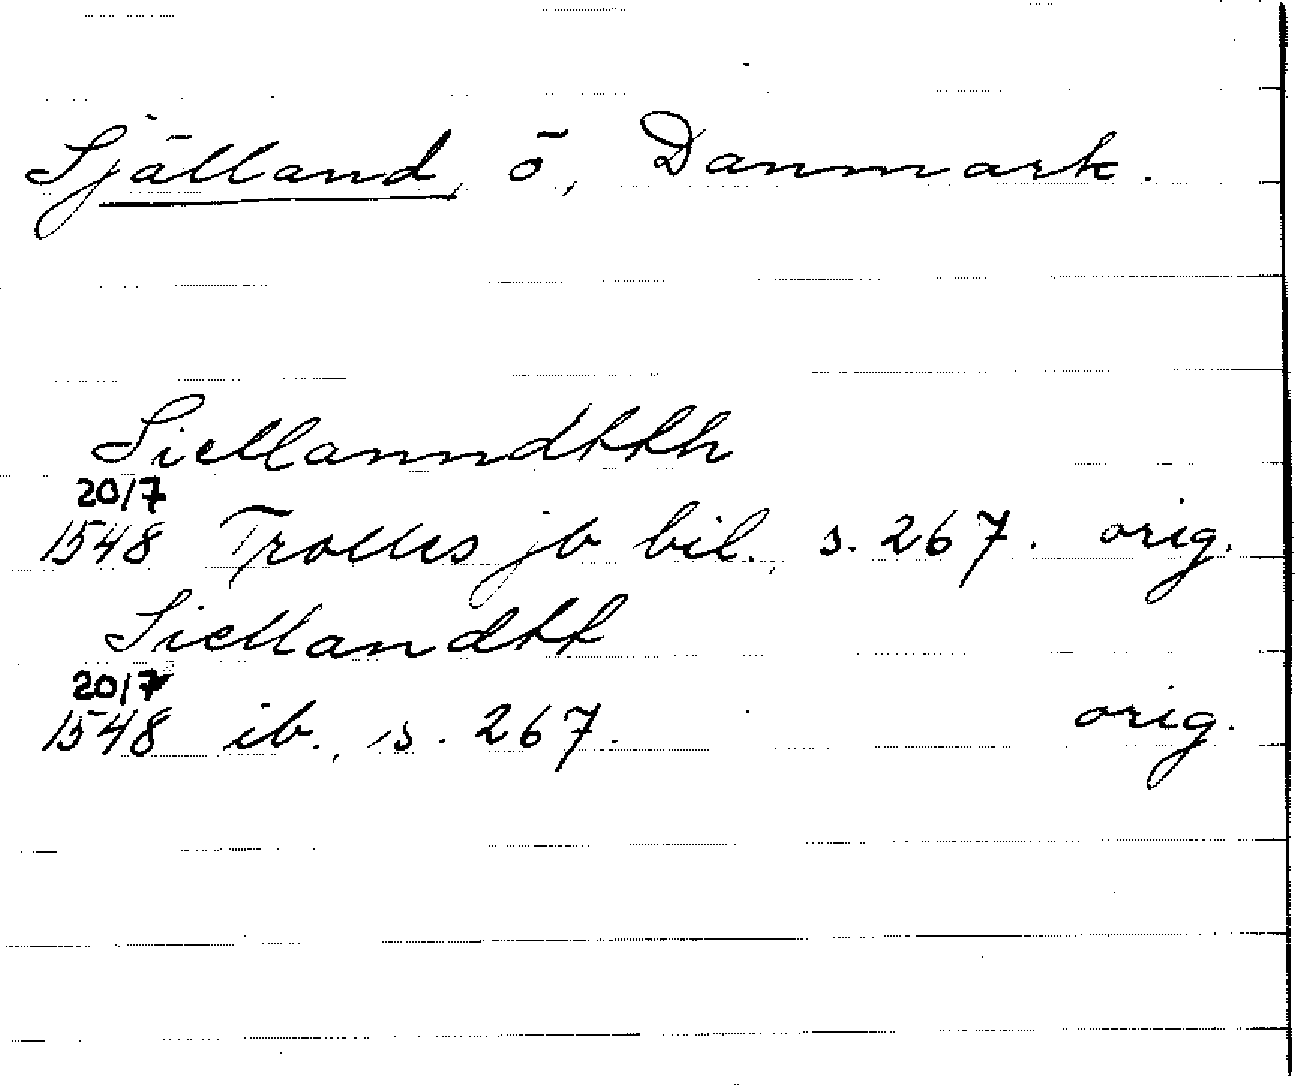 Själland, ö, Danmark.
Siellanndtth
20/7
1548 Trolles jb bil., s. 267. orig.
Siellandtt
20/7
1548 ib., s. 267. orig.